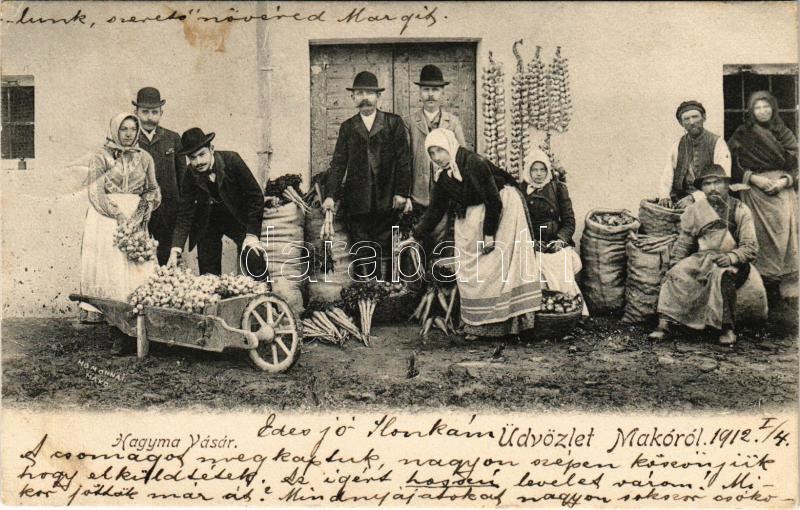 -lunk, szerető nővéred Margit.
darabanth
HOMONNAI
MAKÓ.
Hagyma Vásár.
Édes jó Ilonkám
Üdvözlet Makóról. 1912 I/4.
A csomagot megkaptuk, nagyon szépen köszönjük
hogy elküldtétek. Az igért hosszú levelet várom! Mi-
kor jöttök már át? Mindnyájatokat nagyon sokszor csóko-